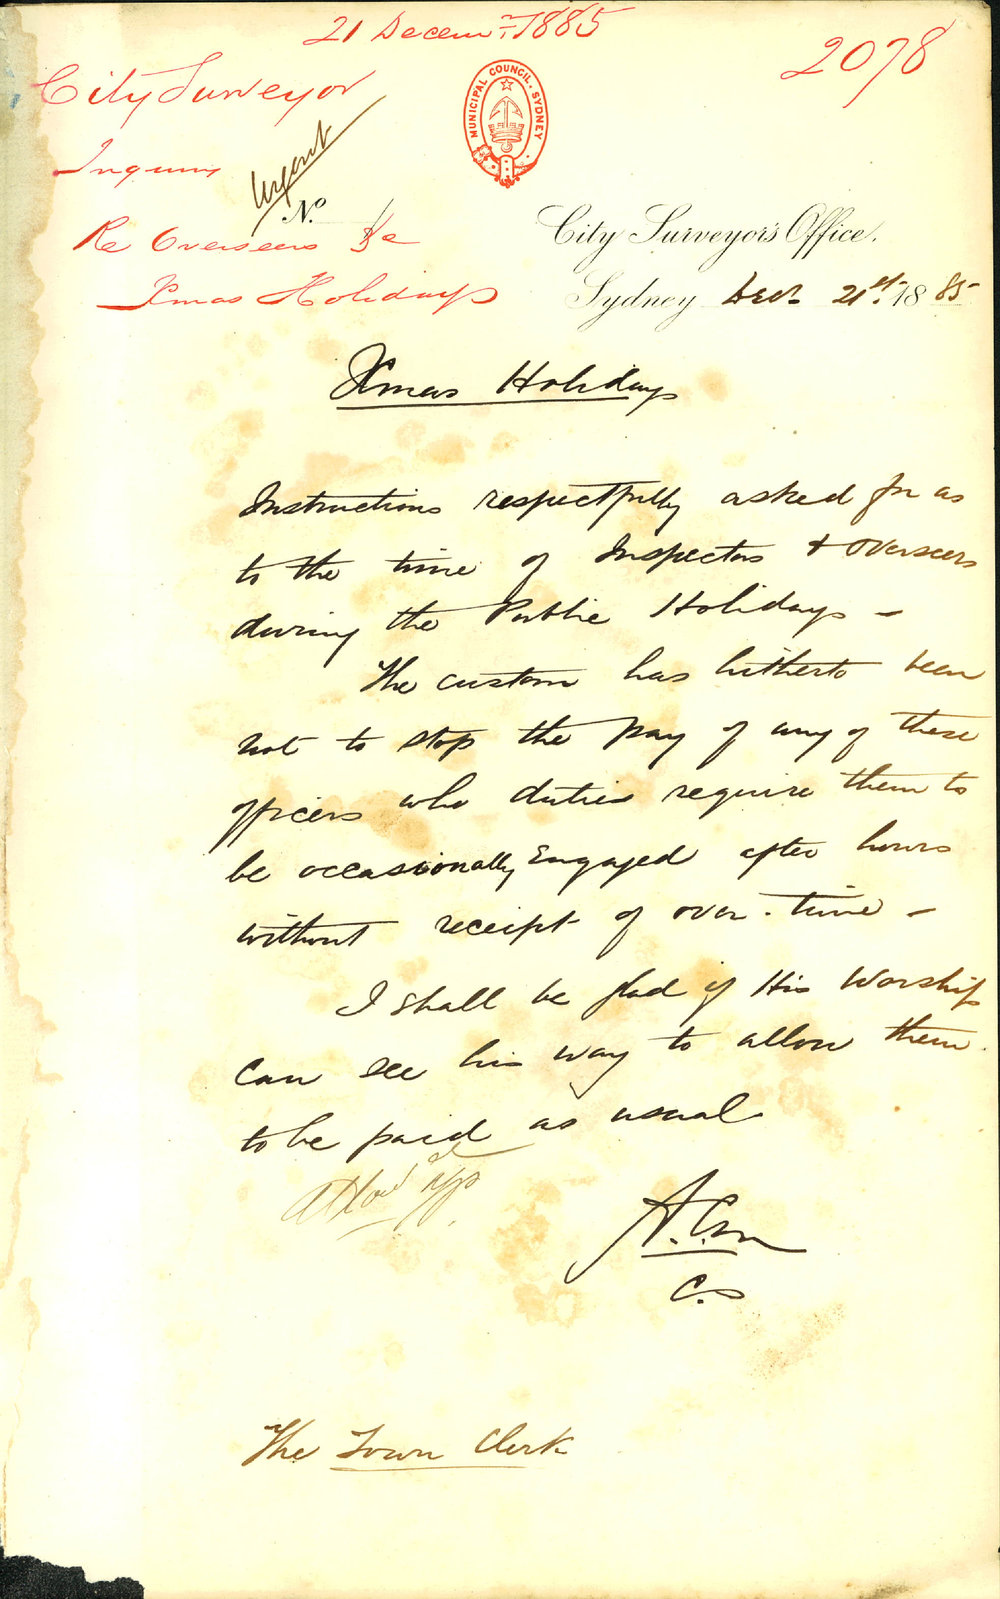 21 Decemr 1885
2078
City Surveyor
MUNICIPAL COUNCIL. SYDNEY
Urgent
Inquiring
No.
Re Overseers &c
City Surveyor's Office.
Xmas Holidays
Sydney Decr. 21st. 1885
Xmas Holidays
Instructions respectfully asked for as
to the time of Inspectors & Overseers
during the Public Holidays -
The custom has hitherto been
not to stop the pay of any of these
officers who duties require them to
be occasionally Engaged after hours
without receipt of over-time -
I shall be glad if His Worship
can see his way to allow them
to be paid as usual
Allowed
C.S
The Town Clerk